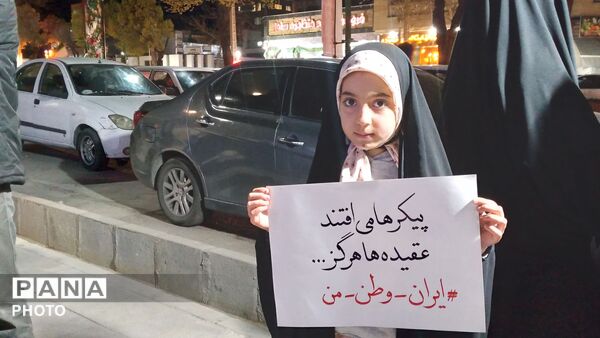 پیکرها می افتند
عقیده ها هرگز...
#ایران-وطن-من
PANA
PHOTO